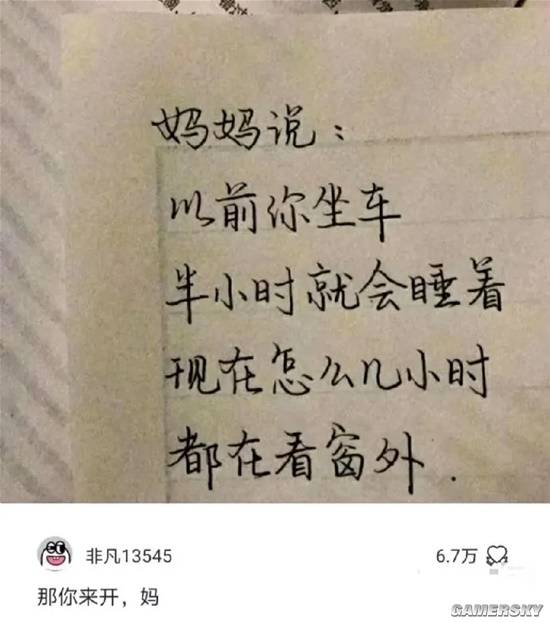 妈妈说：
以前你坐车
半小时就会睡着
现在怎么几小时
都在看窗外.
非凡13545
6.7万
那你来开，妈
GAMERSKY